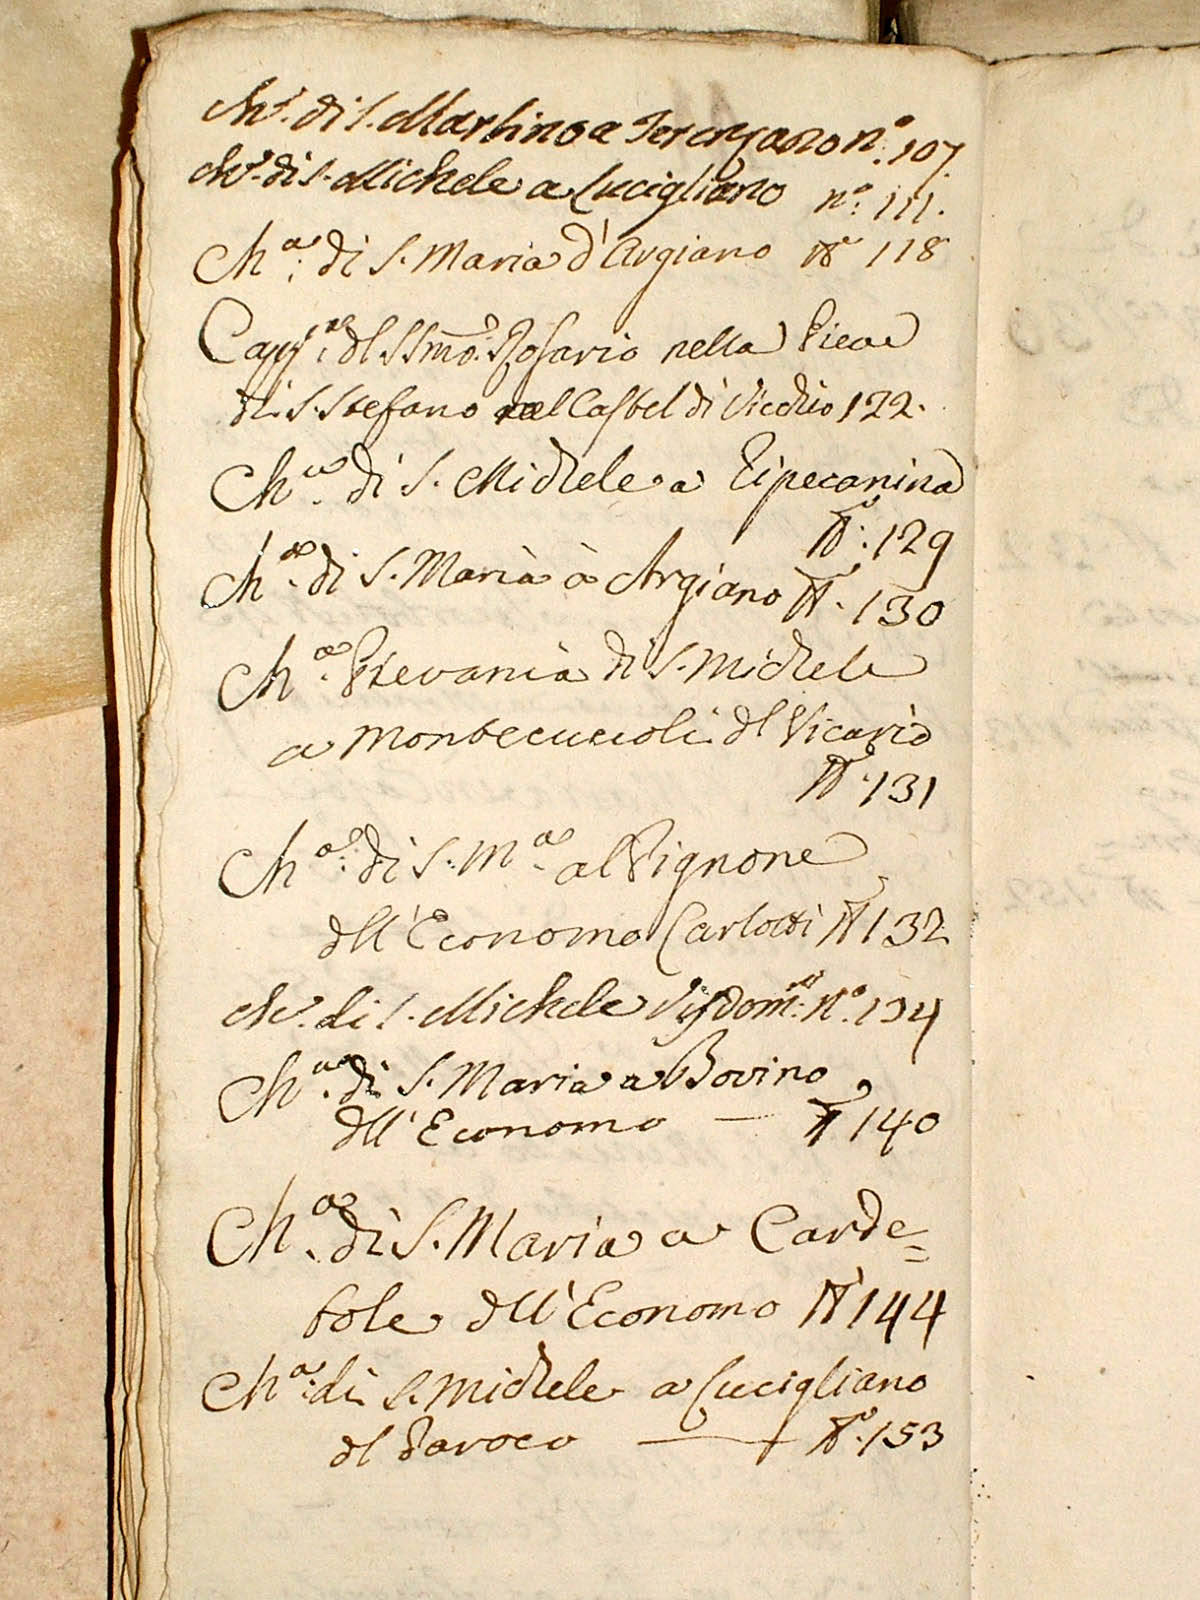 Ch.ª di S. Martino a Terenzano n.º 107.
Ch.ª di S. Michele a Lucigliano n.º 111.
Ch.ª di S. Maria d'Argiano N.º 118
Capp.ª dl SSmo. Rosario nella Pieve
di S. Stefano nel Castel di Vicchio 122.
Ch.ª di S. Michele a Ripecanina
N.º 129
Ch.ª di S. Maria à Argiano N.º 130
Ch.ª Pievania di S. Michele
a Montecuccioli dl Vicario
N.º 131
Ch.ª di S. M.ª al Pignone
dll'Economo Carlotti N 132
Ch.ª di S. Michele Visdom.ⁿⁱ n.º 134
Ch.ª di S. Maria a Bovino
dll'Economo — N.º 140
Ch.ª di S. Maria a Carde=
tole dll'Economo N 144
Ch.ª di S. Michele a Lucigliano
dl Paroco — N.º 153